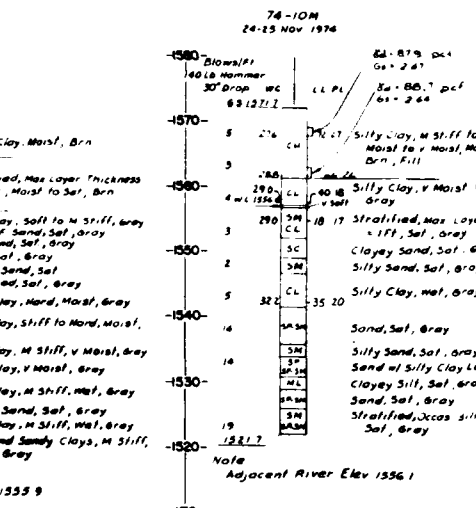 74-10M
24-25 Nov 1974
-1580
Blows/Ft
40 Lb Hammer
30" Drop WC LL PL
GS 1571.7
γd = 87.9 pcf
Gs = 2.67
γd = 88.7 pcf
Gs = 2.64
-1570
5 CH Silty Clay, M Stiff to
Moist to v Moist, Mo
Brn, Fill
3
28.8
-1560
29.0 CL 40 18 Silty Clay, v Moist
4 WL 1556 v Soft Gray
29.0 SM 18 17 Stratified, Max Laye
3 CL = 1ft, Sat, Gray
SC Clayey Sand, Sat, G
-1550
2 SM Silty Sand, Sat, Gra
5 CL Silty Clay, Wet, Gra
32.2 35 20
-1540
14 SP-SM Sand, Sat, Gray
SM Silty Sand, Sat, Gray
14 SP Sand w/ Silty Clay L
SP-SM
-1530
ML Clayey Silt, Sat, Gra
SP-SM Sand, Sat, Gray
SM Stratified, Occas Silt
19 SP-SM Sat, Gray
-1520
1521.7
Note
Adjacent River Elev 1556.1
Clay, Moist, Brn
ed, Max Layer Thickness
, Moist to Sat, Brn
ay, Soft to M Stiff, Gray
f Sand, Sat, Gray
nd, Sat, Gray
at, Gray
Sand, Sat
ed, Sat, Gray
lay, Hard, Moist, Gray
lay, Stiff to Hard, Moist,
ay, M Stiff, v Moist, Gray
lay, v Moist, Gray
lay, M Stiff, Wet, Gray
Sand, Sat, Gray
lay, M Stiff, Wet, Gray
nd Sandy Clays, M Stiff,
Gray
1555.9